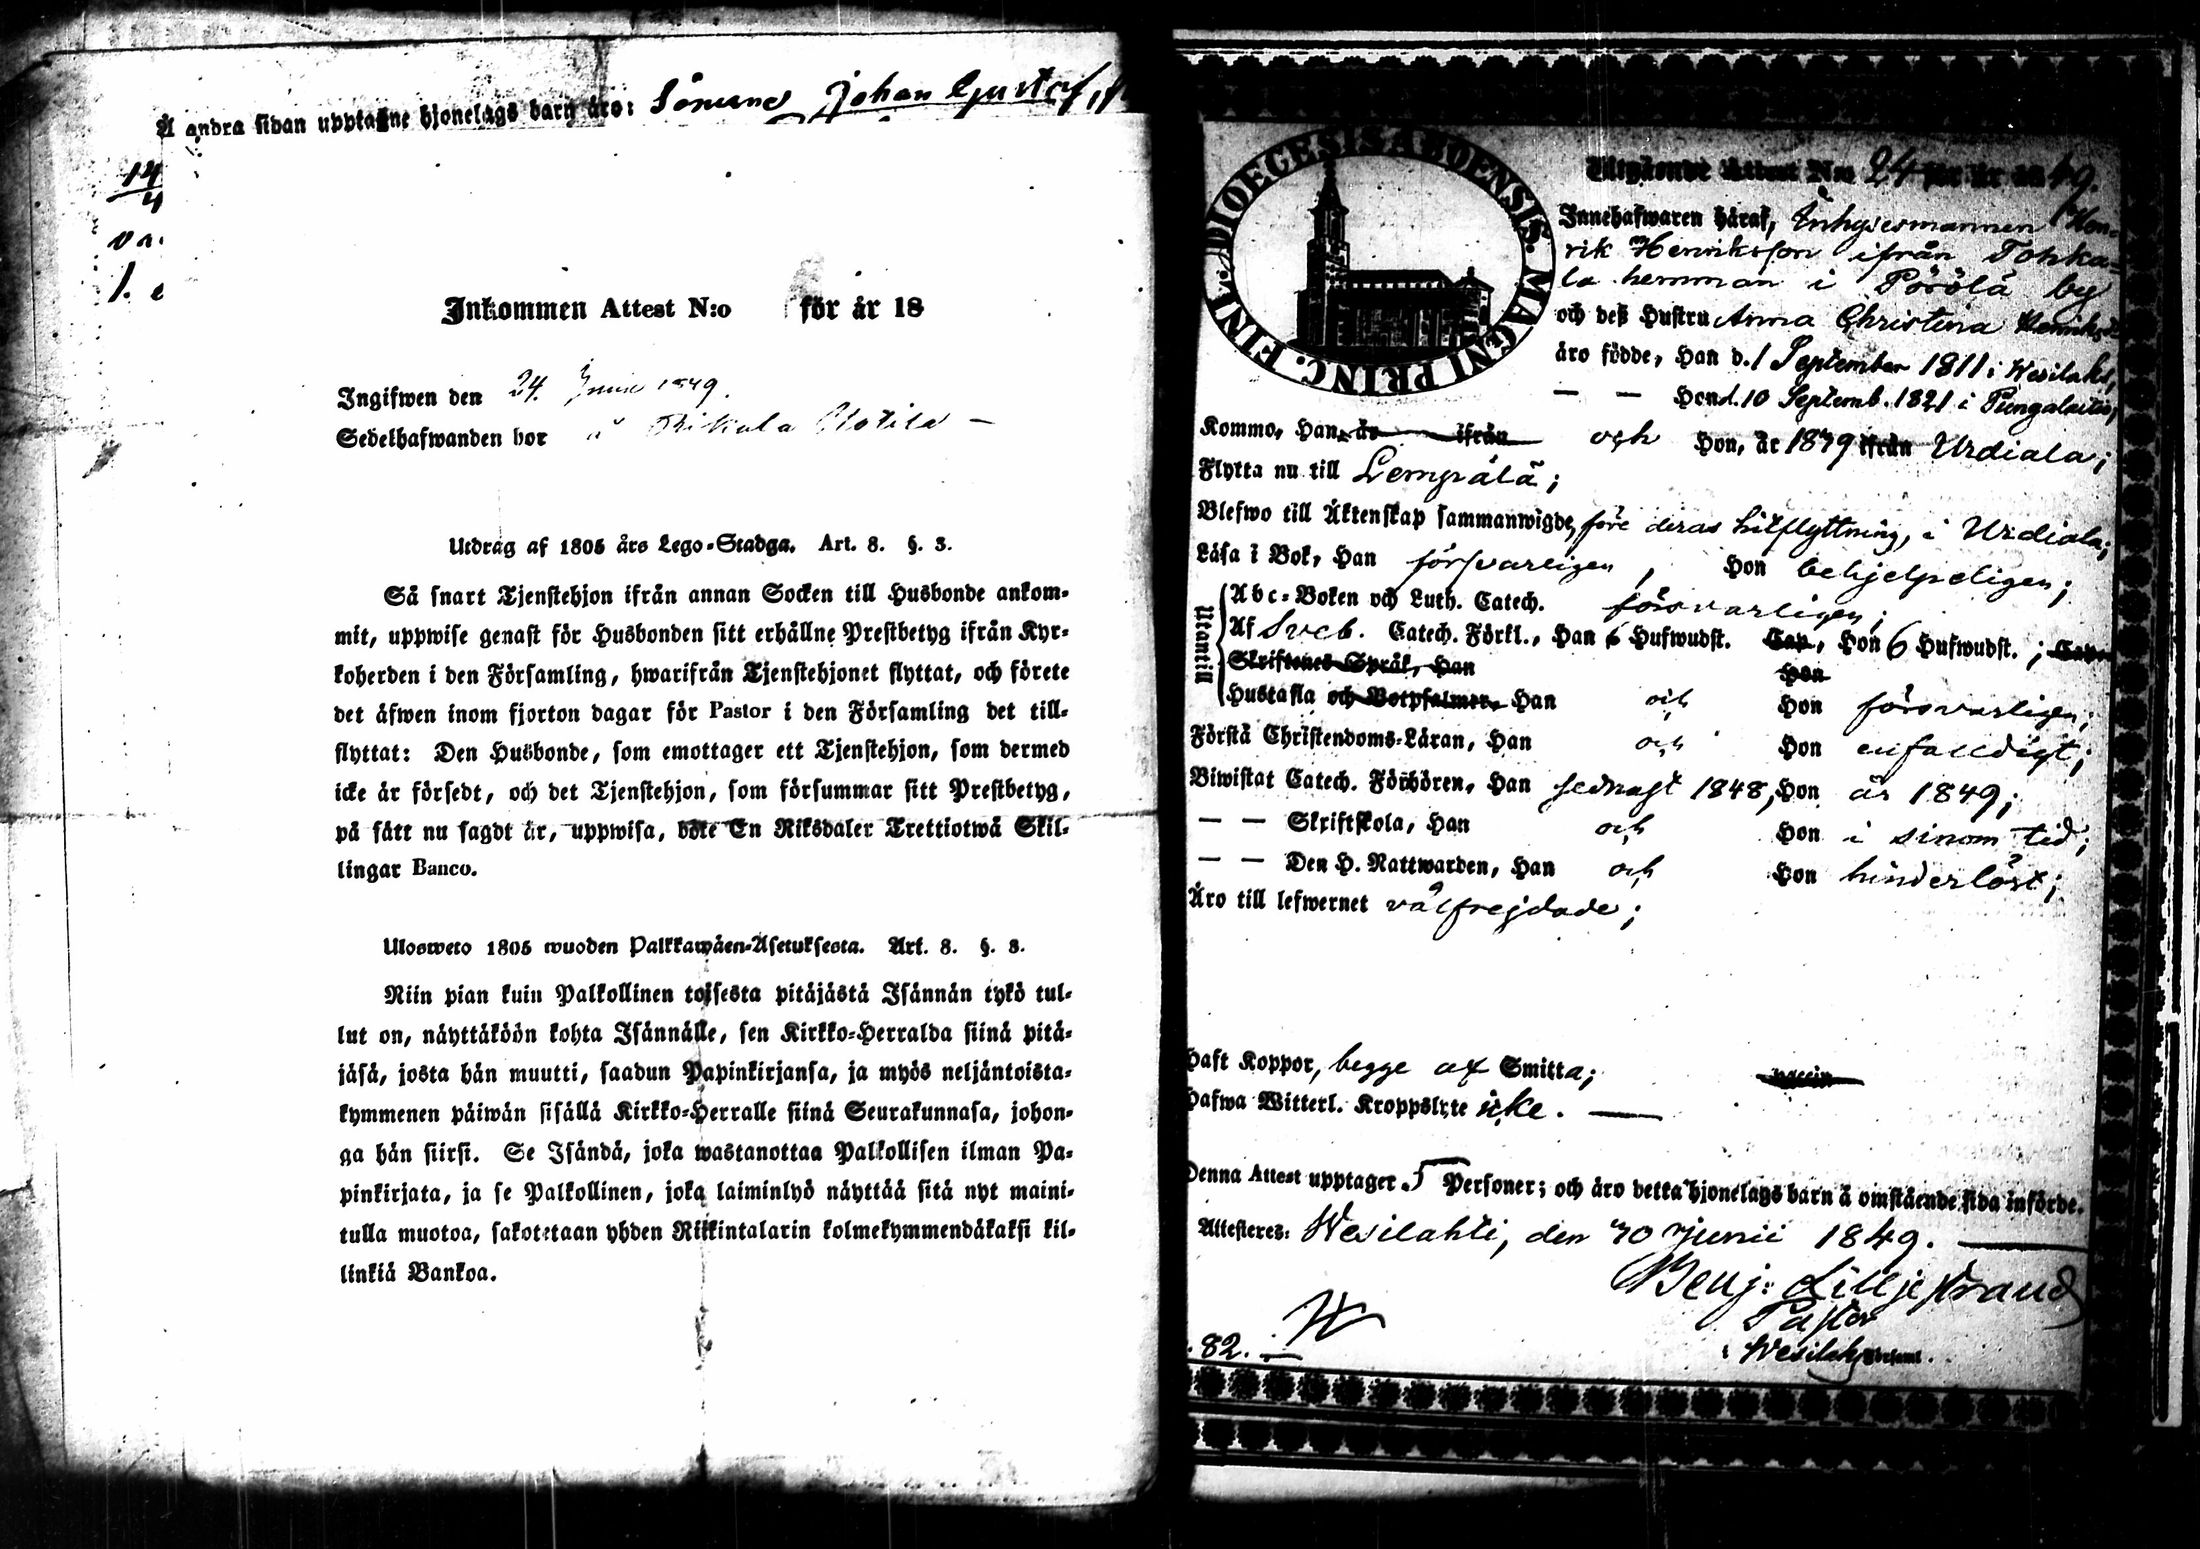 Å andra sidan upptagne hjonelags barn äro: Sönerne Johan Gustaf,
14
va
1.
Inkommen Attest N:o för år 18
Ingifwen den 24. Junii 1849.
Sedelhafwanden bor å
Utdrag af 1805 års Lego-Stadga. Art. 8. §. 3.
Så snart Tjenstehjon ifrån annan Socken till Husbonde ankom-
mit, uppwise genast för Husbonden sitt erhållne Prestbetyg ifrån Kyr-
koherden i den Församling, hwarifrån Tjenstehjonet flyttat, och förete
det äfwen inom fjorton dagar för Pastor i den Församling det till-
flyttat: Den Husbonde, som emottager ett Tjenstehjon, som dermed
icke är försedt, och det Tjenstehjon, som försummar sitt Prestbetyg,
på sått nu sagdt är, uppwisa, böte En Riksdaler Trettiotwå Skil-
lingar Banco.
Ulosweto 1805 wuoden Palkkawäen-Asetuksesta. Art. 8. §. 3.
Niin pian kuin Palkollinen toisesta pitäjästä Isännän tykö tul-
lut on, näyttäköön kohta Isännälle, sen Kirkko-Herralda siinä pitä-
jäsä, josta hän muutti, saadun Papinkirjansa, ja myös neljäntoista-
kymmenen päiwän sisällä Kirkko-Herralle siinä Seurakunnasa, johon-
ga hän siirsi. Se Isändä, joka wastanottaa Palkollisen ilman Pa-
pinkirjata, ja se Palkollinen, joka laiminlyö näyttää sitä nyt maini-
tulla muotoa, sakotetaan yhden Riikintalarin kolmekymmendäkaksi kil-
linkiä Bankoa.
DIOECESIS ABOENSIS. MAGNI PRINC. FINL.
Utgående Attest N:o 24 för år 1849.
Innehafwaren häraf, Inhysesmannen Hen-
rik Henriksson ifrån Tohka-
la hemman i Pöröla by
och deß Hustru Anna Christina
äro födde, Han d. 1 September 1811 i Wesilaks,
— — Hon d. 10 Septemb. 1821 i Pungalaitio,
Kommo, Han är ifrån och Hon, år 1849 ifrån Urdiala;
Flytta nu till Lempälä;
Blefwo till Äktenskap sammanwigde, före deras hitflyttning, i Urdiala;
Läsa i Bok, Han försvarligen, Hon behjelpeligen;
Utantill
Abc-Boken och Luth. Catech. försvarligen;
Af Sveb. Catech. Förkl., Han 6 Hufwudst. Cap., Hon 6 Hufwudst.; Cap.
Skriftenes Språk, Han Hon
Hustafla och Botpsalmer, Han och Hon försvarligen;
Förstå Christendoms-Läran, Han och Hon enfalldigt;
Biwistat Catech. Förhören, Han sednast 1848, Hon år 1849;
— — Skriftskola, Han och Hon i sinom tid;
— — Den H. Nattwarden, Han och Hon hinderlöst;
Äro till lefwernet välfrejdade;
Haft Koppor, begge af Smitta; vaccin
Hafwa Witterl. Kroppslyte icke. —
Denna Attest upptager 5 Personer; och äro detta hjonelags barn å omstående sida införde.
Attesteres: Wesilahti, den 20 Junii 1849. —
Benj: Lilljestrand
Pastor
i Wesilaks Församl.
. 82.